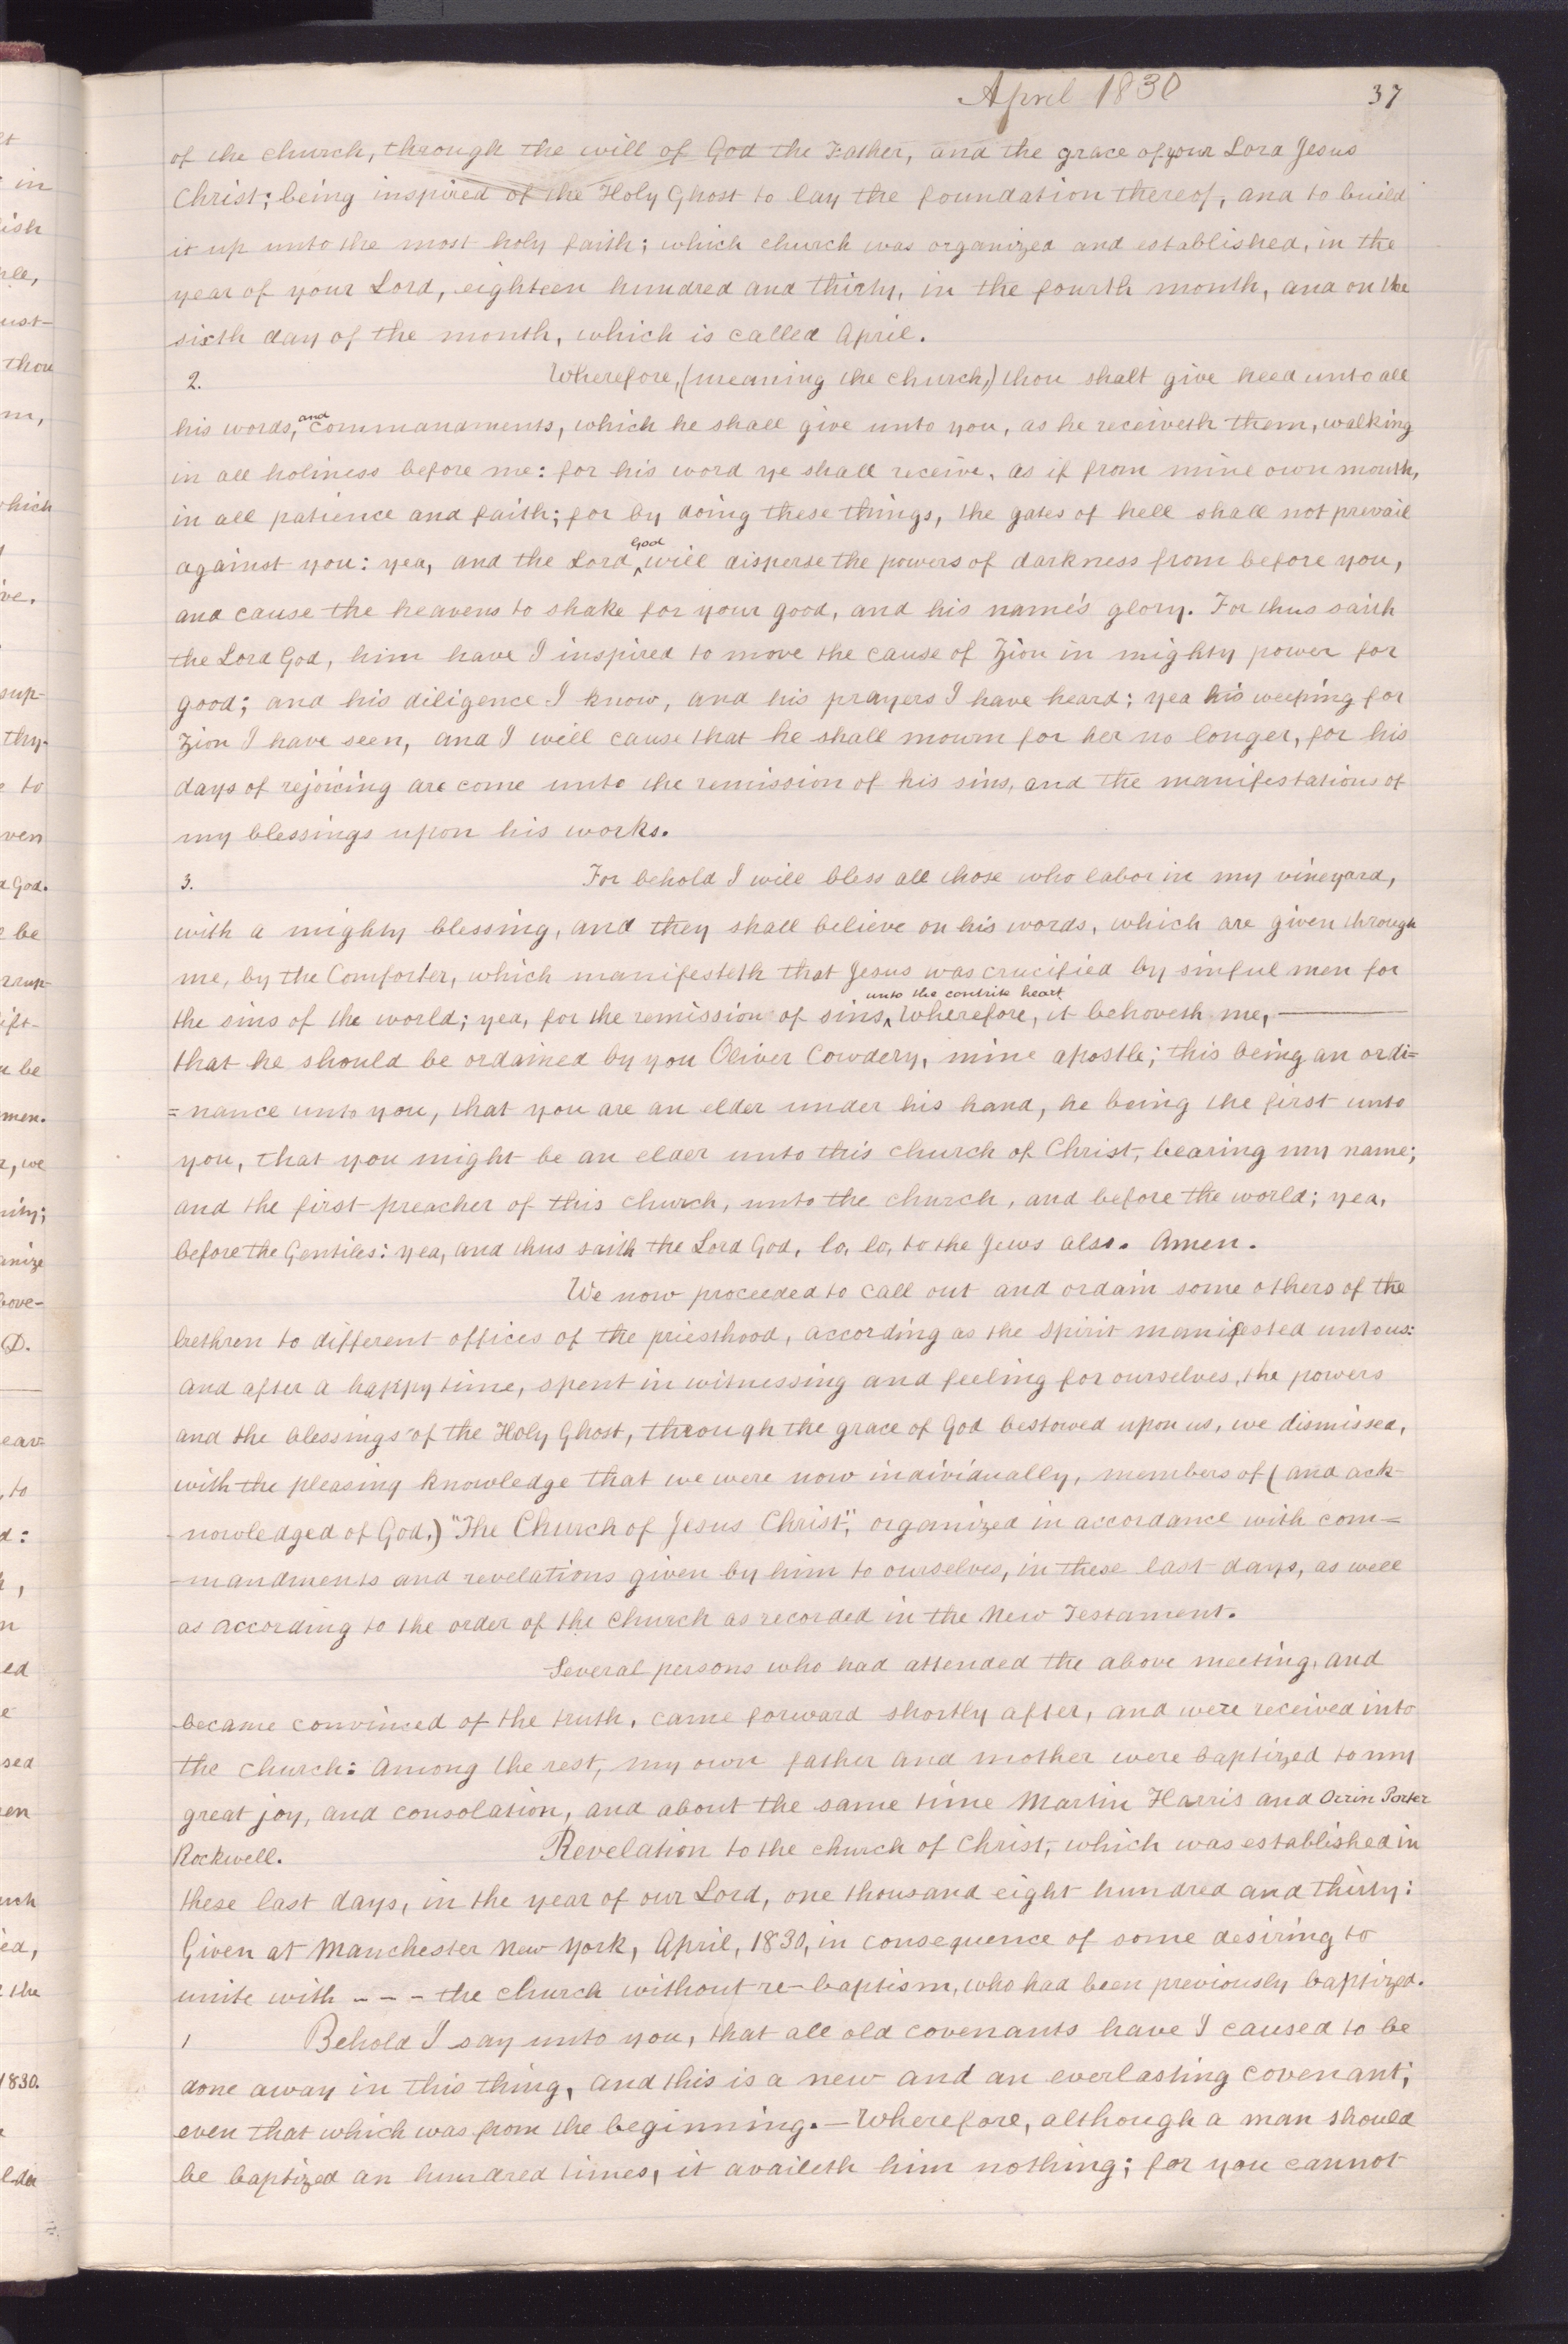 April 1830 37
of the church, through the will of God the Father, and the grace of your Lord Jesus
Christ; being inspired of the Holy Ghost to lay the foundation thereof, and to build
it up unto the most holy faith; which church was organized and established, in the
year of your Lord, eighteen hundred and thirty, in the fourth month, and on the
sixth day of the month, which is called April.
2. Wherefore, (meaning the church,) thou shalt give heed unto all
his words, and commandments, which he shall give unto you, as he receiveth them, walking
in all holiness before me: for his word ye shall receive, as if from mine own mouth,
in all patience and faith; for by doing these things, the gates of hell shall not prevail
against you: yea, and the Lord God will disperse the powers of darkness from before you,
and cause the heavens to shake for your good, and his name's glory. For thus saith
the Lord God, him have I inspired to move the cause of Zion in mighty power for
good; and his diligence I know, and his prayers I have heard; yea his weeping for
Zion I have seen, and I will cause that he shall mourn for her no longer, for his
days of rejoicing are come unto the remission of his sins, and the manifestations of
my blessings upon his works.
3. For behold I will bless all those who labor in my vineyard,
with a mighty blessing, and they shall believe on his words, which are given through
me, by the Comforter, which manifesteth that Jesus was crucified by sinful men for
the sins of the world; yea, for the remission of sins unto the contrite heart. Wherefore, it behoveth me, ———
that he should be ordained by you Oliver Cowdery, mine apostle; this being an ordi=
=nance unto you, that you are an elder under his hand, he being the first unto
you, that you might be an elder unto this church of Christ, bearing my name;
and the first preacher of this church, unto the church, and before the world; yea,
before the Gentiles: yea, and thus saith the Lord God, lo, lo, to the Jews also. Amen.
We now proceeded to call out and ordain some others of the
brethren to different offices of the priesthood, according as the spirit manifested unto us:
and after a happy time, spent in witnessing and feeling for ourselves, the powers
and the blessings of the Holy Ghost, through the grace of God bestowed upon us, we dismissed,
with the pleasing knowledge that we were now individually, members of (and ack-
-nowledged of God,) "The Church of Jesus Christ", organized in accordance with com=
-mandments and revelations given by him to ourselves, in these last days, as well
as according to the order of the church as recorded in the New Testament.
Several persons who had attended the above meeting, and
became convinced of the truth, came forward shortly after, and were received into
the church: among the rest, my own father and mother were baptized to my
great joy, and consolation, and about the same time Martin Harris and Orrin Porter
Rockwell. Revelation to the church of Christ, which was established in
these last days, in the year of our Lord, one thousand eight hundred and thirty:
Given at Manchester New York, April, 1830, in consequence of some desiring to
unite with - - - the church without re-baptism, who had been previously baptized.
1 Behold I say unto you, that all old covenants have I caused to be
done away in this thing, and this is a new and an everlasting covenant;
even that which was from the beginning.—Wherefore, although a man should
be baptized an hundred times, it availeth him nothing; for you cannot